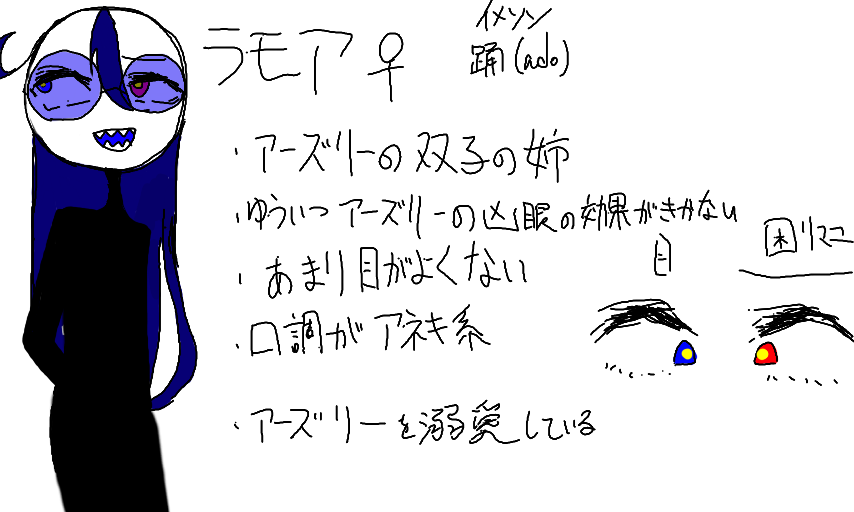 ラモア♀
イメソン
踊(ado)
・アーズリーの双子の姉
・ゆういつアーズリーの凶眼の効果がきかない
・あまり目がよくない
・口調がアネキ系
・アーズリーを溺愛している
目